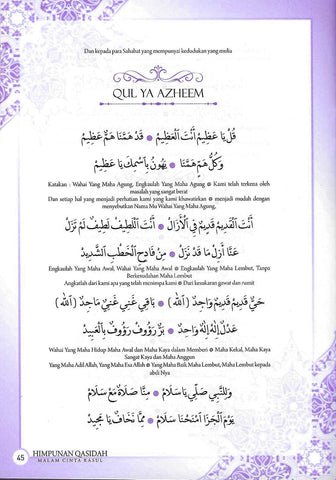 Dan kepada para Sahabat yang mempunyai kedudukan yang mulia
QUL YA AZHEEM
قُلْ يَا عَظِيمُ أَنْتَ الْعَظِيمُ • قَدْ هَمَّنَا هَمٌّ عَظِيمُ
وَكُلُّ هَمٍّ هَمَّنَا • يَهُونُ بِاسْمِكَ يَا عَظِيمُ
Katakan : Wahai Yang Maha Agung, Engkaulah Yang Maha Agung • Kami telah terkena oleh
masalah yang sangat berat
Dan setiap hal yang menjadi perhatian kami yang kami khawatirkan • menjadi mudah dengan
menyebutkan Nama Mu Wahai Yang Maha Agung,
أَنْتَ الْقَدِيمُ قَدِيمٌ فِي الْأَزَالْ • أَنْتَ اللَّطِيفُ لَطِيفٌ لَمْ تَزَلْ
عَنَّا أَزِلْ مَا قَدْ نَزَلْ • مِنْ فَادِحِ الْخَطْبِ الشَّدِيدْ
Engkaulah Yang Maha Awal, Wahai Yang Maha Awal • Engkaulah Yang Maha Lembut, Tanpa
Berkesudahan Maha Lembut
Angkatlah dari kami apa yang telah menimpa kami • Dari kesukaran gawat dan rumit
حَيٌّ قَدِيمٌ قَدِيمٌ وَاجِدٌ (الله) • بَاقِي غَنِي غَنِيٌّ مَاجِدٌ (الله)
عَدْلٌ إِلٰهٌ إِلٰهٌ وَاحِدٌ • بَرٌّ رَؤُوفٌ رَؤُوفٌ بِالْعَبِيدْ
Wahai Yang Maha Hidup Maha Awal dan Maha Kaya dalam Memberi • Maha Kekal, Maha Kaya
Sangat Kaya dan Maha Anggun
Yang Maha Adil Allah, Yang Maha Esa Allah • Yang Maha Baik Maha Lembut, Maha Lembut kepada
abdi Nya
وَلِلنَّبِي صَلِّي يَا سَلَامُ • مِنَّا صَلَاةً مَعْ سَلَامْ
يَوْمَ الْجَزَا امْنَحْنَا سَلَامْ • مِمَّا نَخَافُ يَا مَجِيدْ
45
HIMPUNAN QASIDAH
MALAM CINTA RASUL